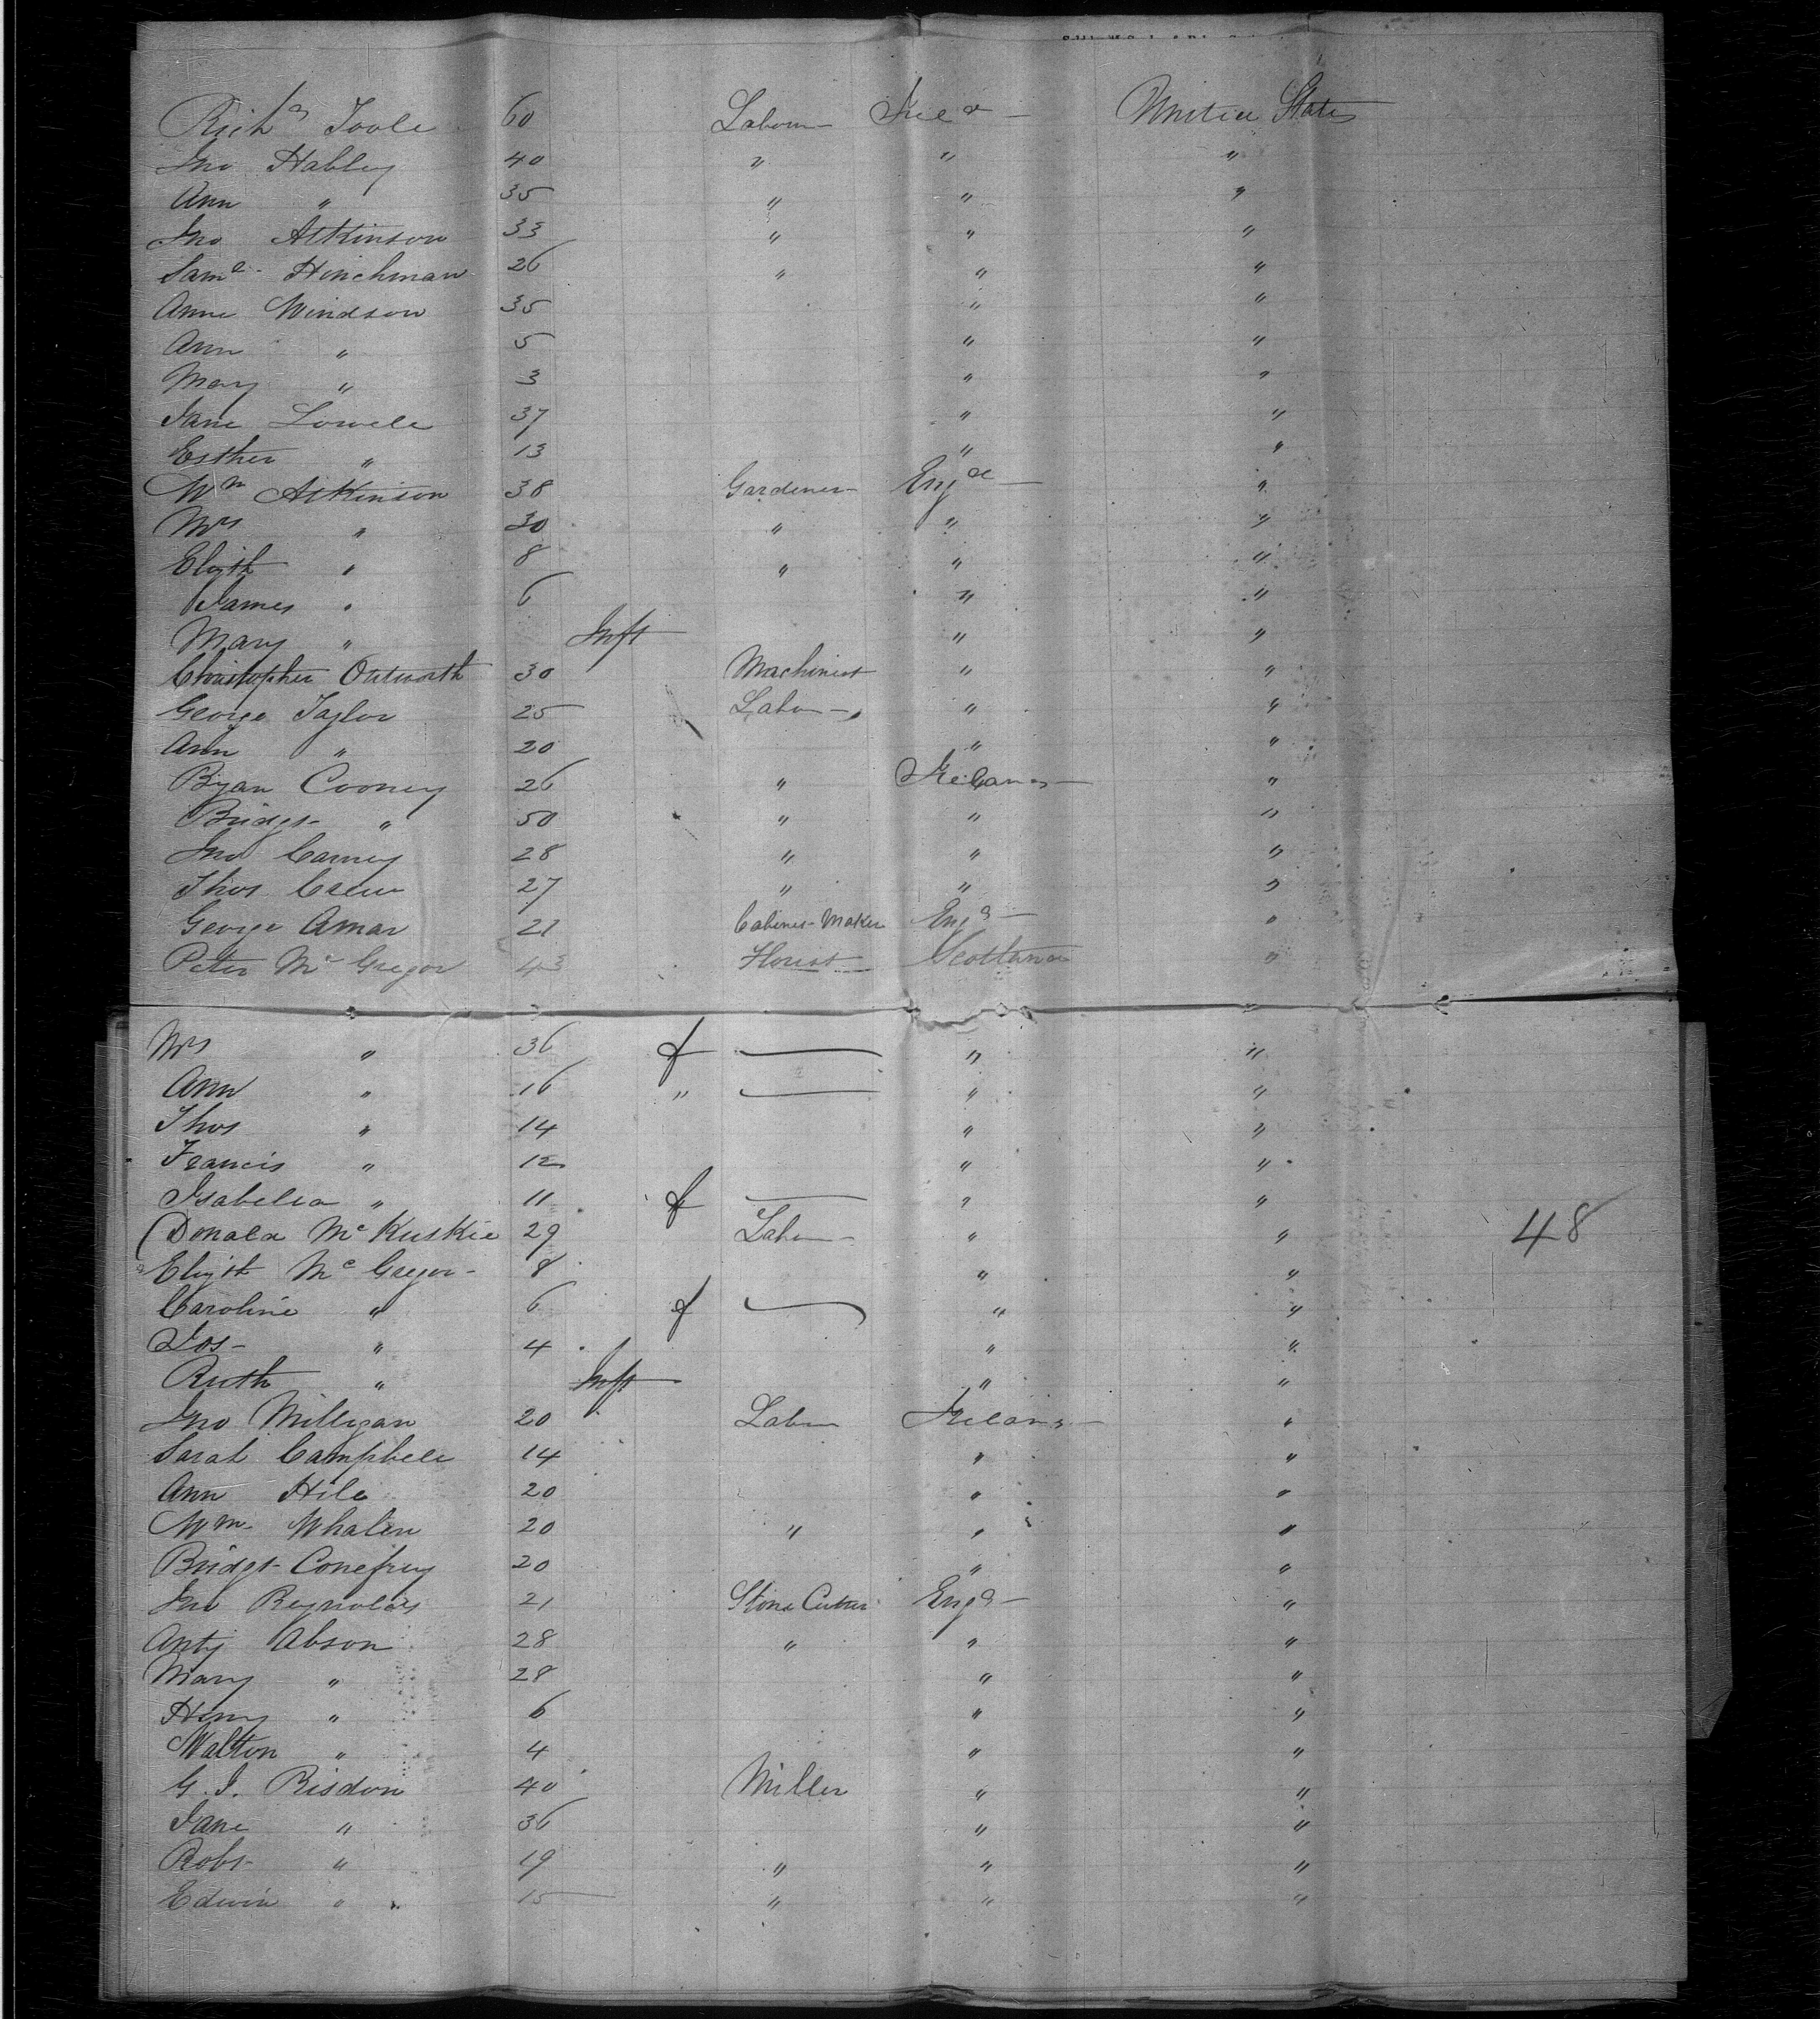 Richd Toole 60 Labour Ireld United States
Jno Habley 40 " " "
Ann " 35 " " "
Jno Atkinson 33 " " "
Saml Hinchman 26 " " "
Anne Windson 35 " "
Ann " 5 " "
Mary " 3 " "
Jane Lowell 37 " "
Esther " 13 " "
Wm Atkinson 38 Gardener Engd "
Mrs " 30 " " "
Elizth " 8 " " "
James " 6 " "
Mary " Inft " "
Christopher Outworth 30 Machinist " "
George Taylor 25 Labor " "
Ann " 20 " "
Bryan Cooney 26 " Ireland "
Bridgt " 50 " " "
Jno Carney 28 " " "
Thos Crew 27 " " "
George Amar 21 Cabinet Maker Engd "
Peter McGregor 43 Florist Scotland "
Mrs " 36 f — " "
Ann " 16 " — " "
Thos " 14 " "
Francis " 12 " "
Isabella " 11 f — " "
Donald McKuskie 29 Labor " " 48
Elizth McGregor 8 " "
Caroline " 6 f — " "
Jos " 4 " "
Ruth " Inft " "
Jno Milligan 20 Labor Ireland "
Sarah Campbell 14 " "
Ann Hile 20 " "
Wm Whalen 20 " " "
Bridgt Conefrey 20 " "
Jno Reynolds 21 Stone Cutter Engd "
Anty Abson 28 " " "
Mary " 28 " "
Henry " 6 " "
Walton " 4 " "
G. J. Risdon 40 Miller " "
Jane " 36 " "
Robt " 19 " " "
Edwin " 15 " " "